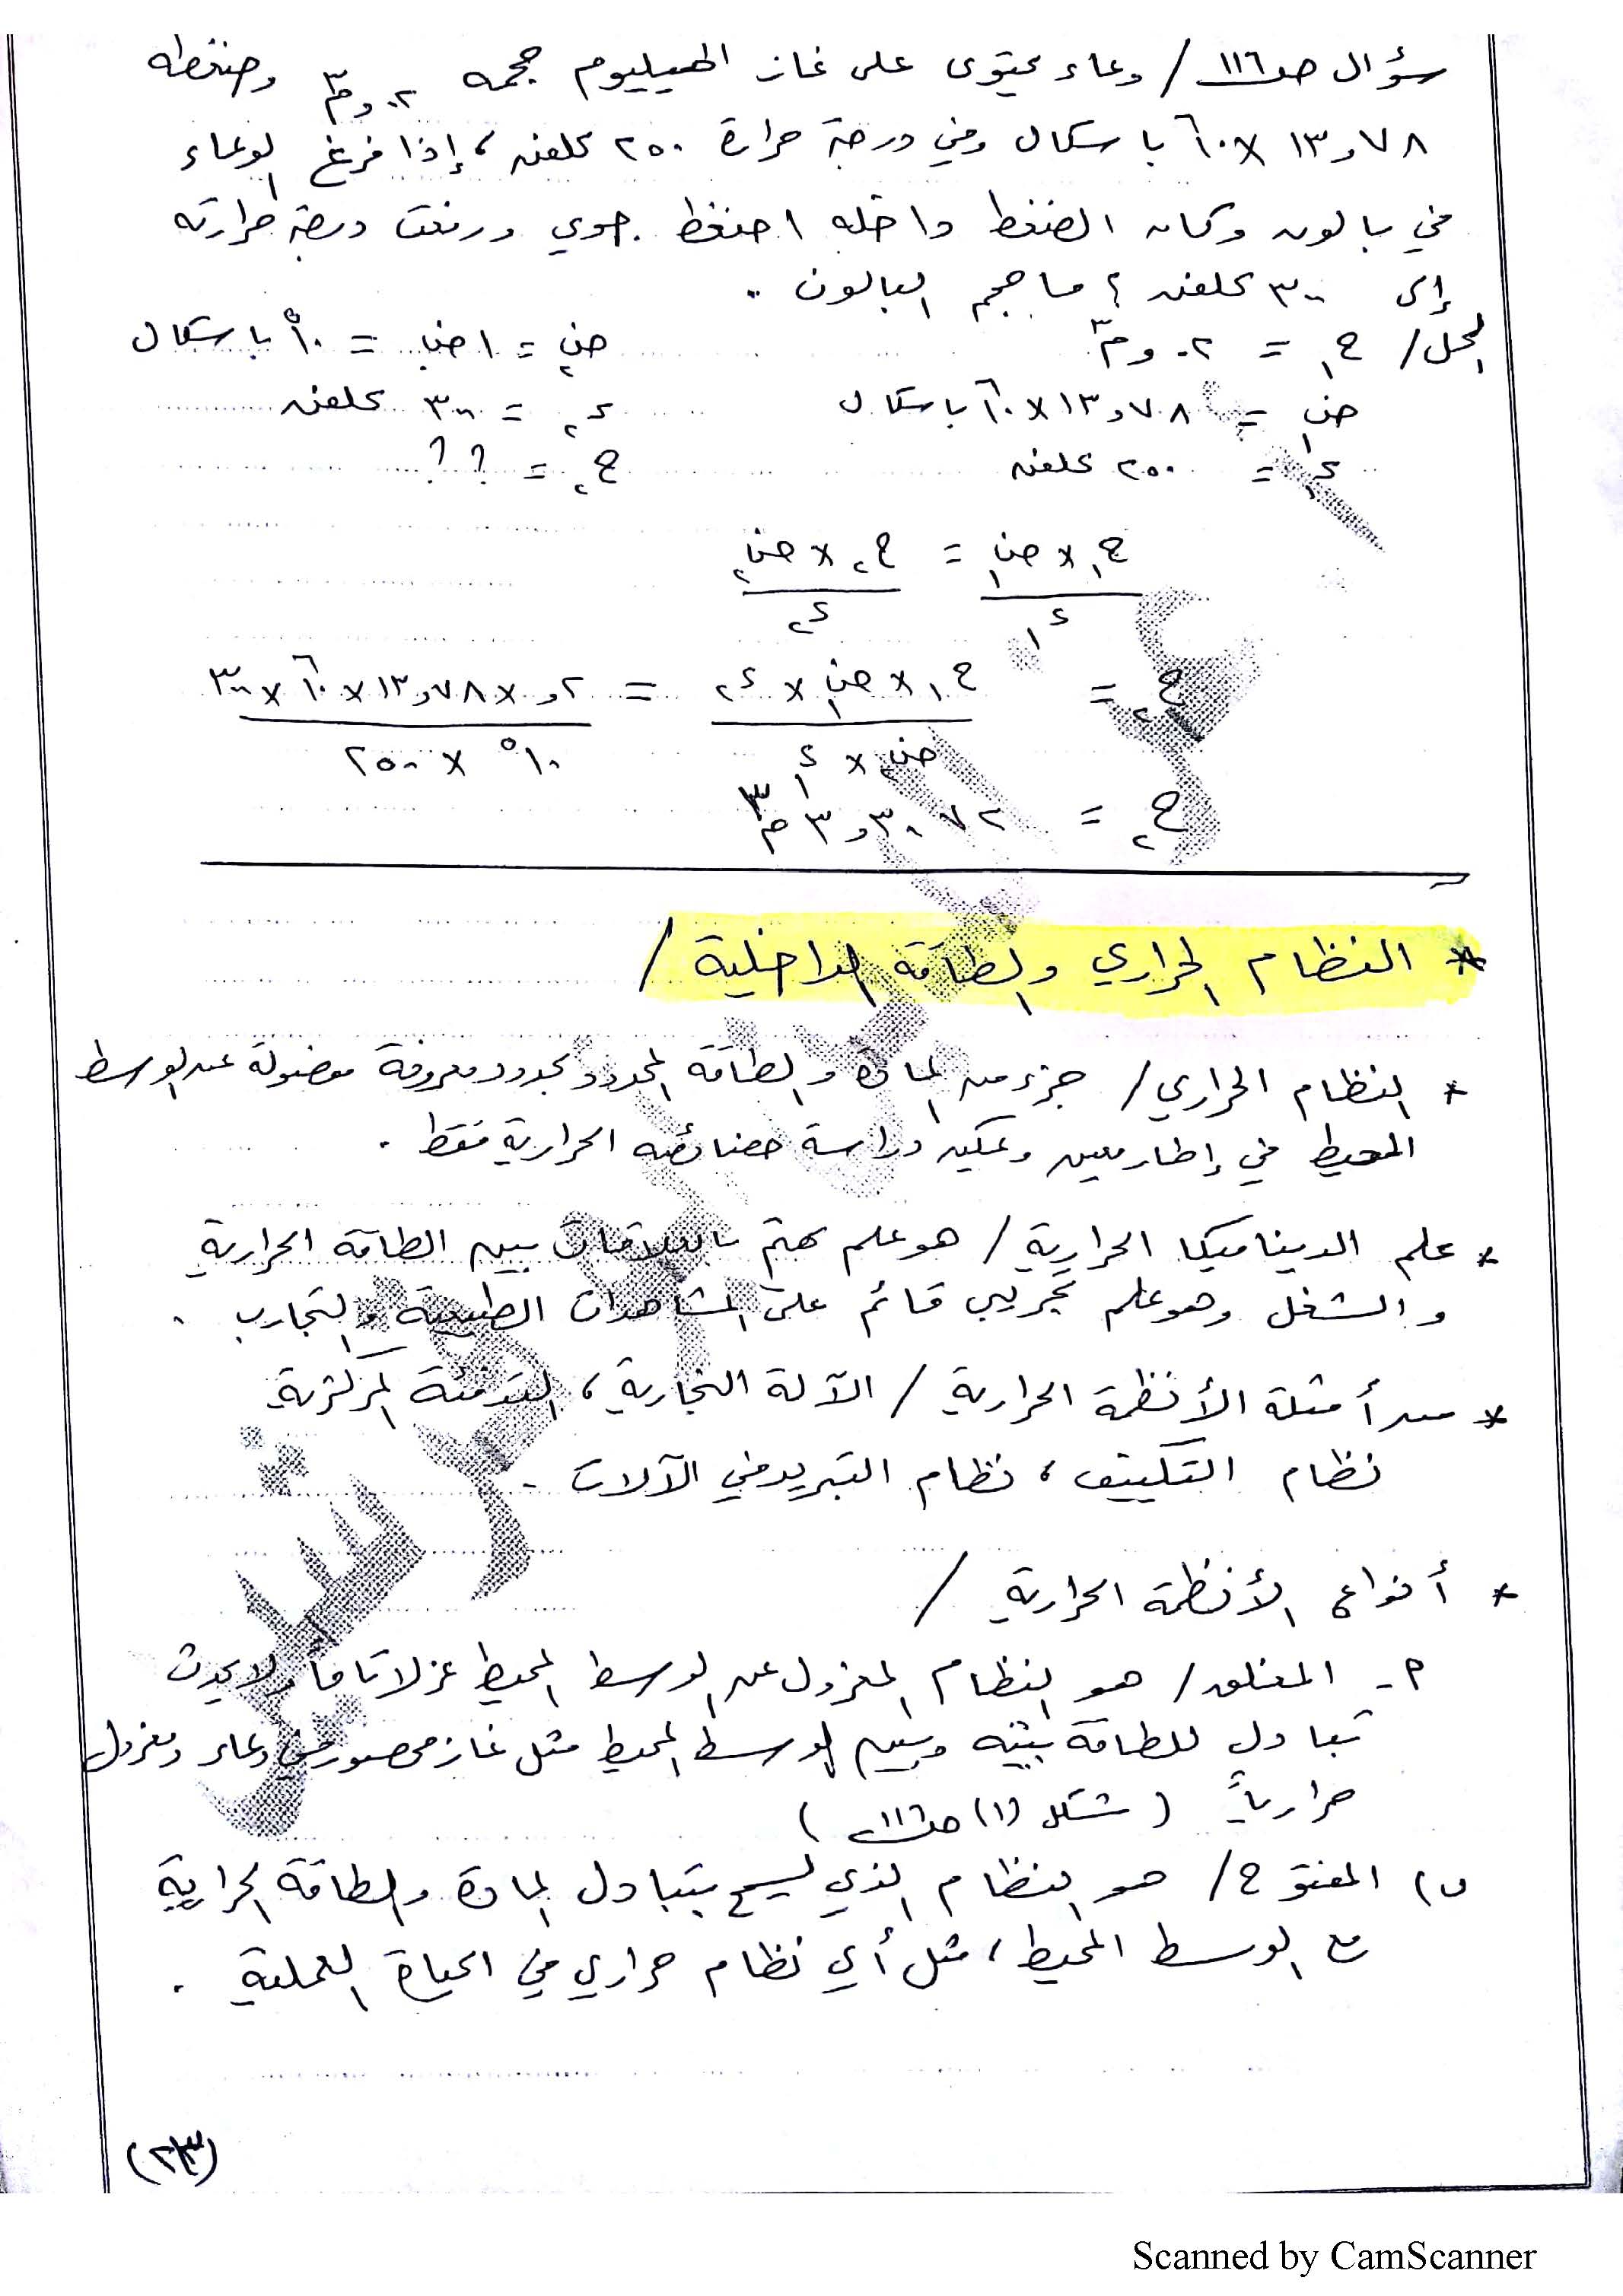 سؤال صـ١١٦ / وعاء يحتوي على غاز الهيليوم حجمه ٠٢و م٣ وضغطه
٧٨و١٣ × ١٠٦ باسكال وفي درجة حرارة ٢٥٠ كلفن ، إذا فرغ الوعاء
في بالون وكان الضغط داخله ١ ضغط جوي ورفعت درجة حرارته
إلى ٣٠٠ كلفن ؟ ما حجم البالون ..
الحل / ح١ = ٠٢و م٣ ض٢ = ١ ض = ١٠٥ باسكال
ض١ = ٧٨و١٣ × ١٠٦ باسكال ء٢ = ٣٠٠ كلفن
ء١ = ٢٥٠ كلفن ح٢ = ؟ ؟
ح١ × ض١ = ح٢ × ض٢
ء١ ء٢
ح٢ = ح١ × ض١ × ء٢ = ٠٢و × ٧٨و١٣ × ١٠٦ × ٣٠٠
ض٢ × ء١ ١٠٥ × ٢٥٠
ح٢ = ٣٠٧٢و٣ م٣
* النظام الحراري والطاقة الداخلية /
* النظام الحراري / جزء من المادة والطاقة المحدد بحدود معروفة مفصولة عن الوسط
المحيط في إطار معين ويمكن دراسة خصائصه الحرارية فقط .
* علم الديناميكا الحرارية / هو علم يهتم بالعلاقات بين الطاقة الحرارية
والشغل وهو علم تجريبي قائم على المشاهدات الطبيعية والتجارب .
* من أمثلة الأنظمة الحرارية / الآلة البخارية ، التدفئة المركزية
نظام التكييف ، نظام التبريد في الآلات .
* أنواع الأنظمة الحرارية /
٢- المغلق / هو النظام المعزول عن الوسط المحيط عزلا تاماً ولا يحدث
تبادل للطاقة بينه وبين الوسط المحيط مثل غاز محصور في وعاء ومعزول
حرارياً ( شكل (١) صـ١١٦ )
ب) المفتوح / هو النظام الذي يسمح بتبادل المادة والطاقة الحرارية
مع الوسط المحيط ، مثل أي نظام حراري في الحياة العملية .
(٢٣)
Scanned by CamScanner